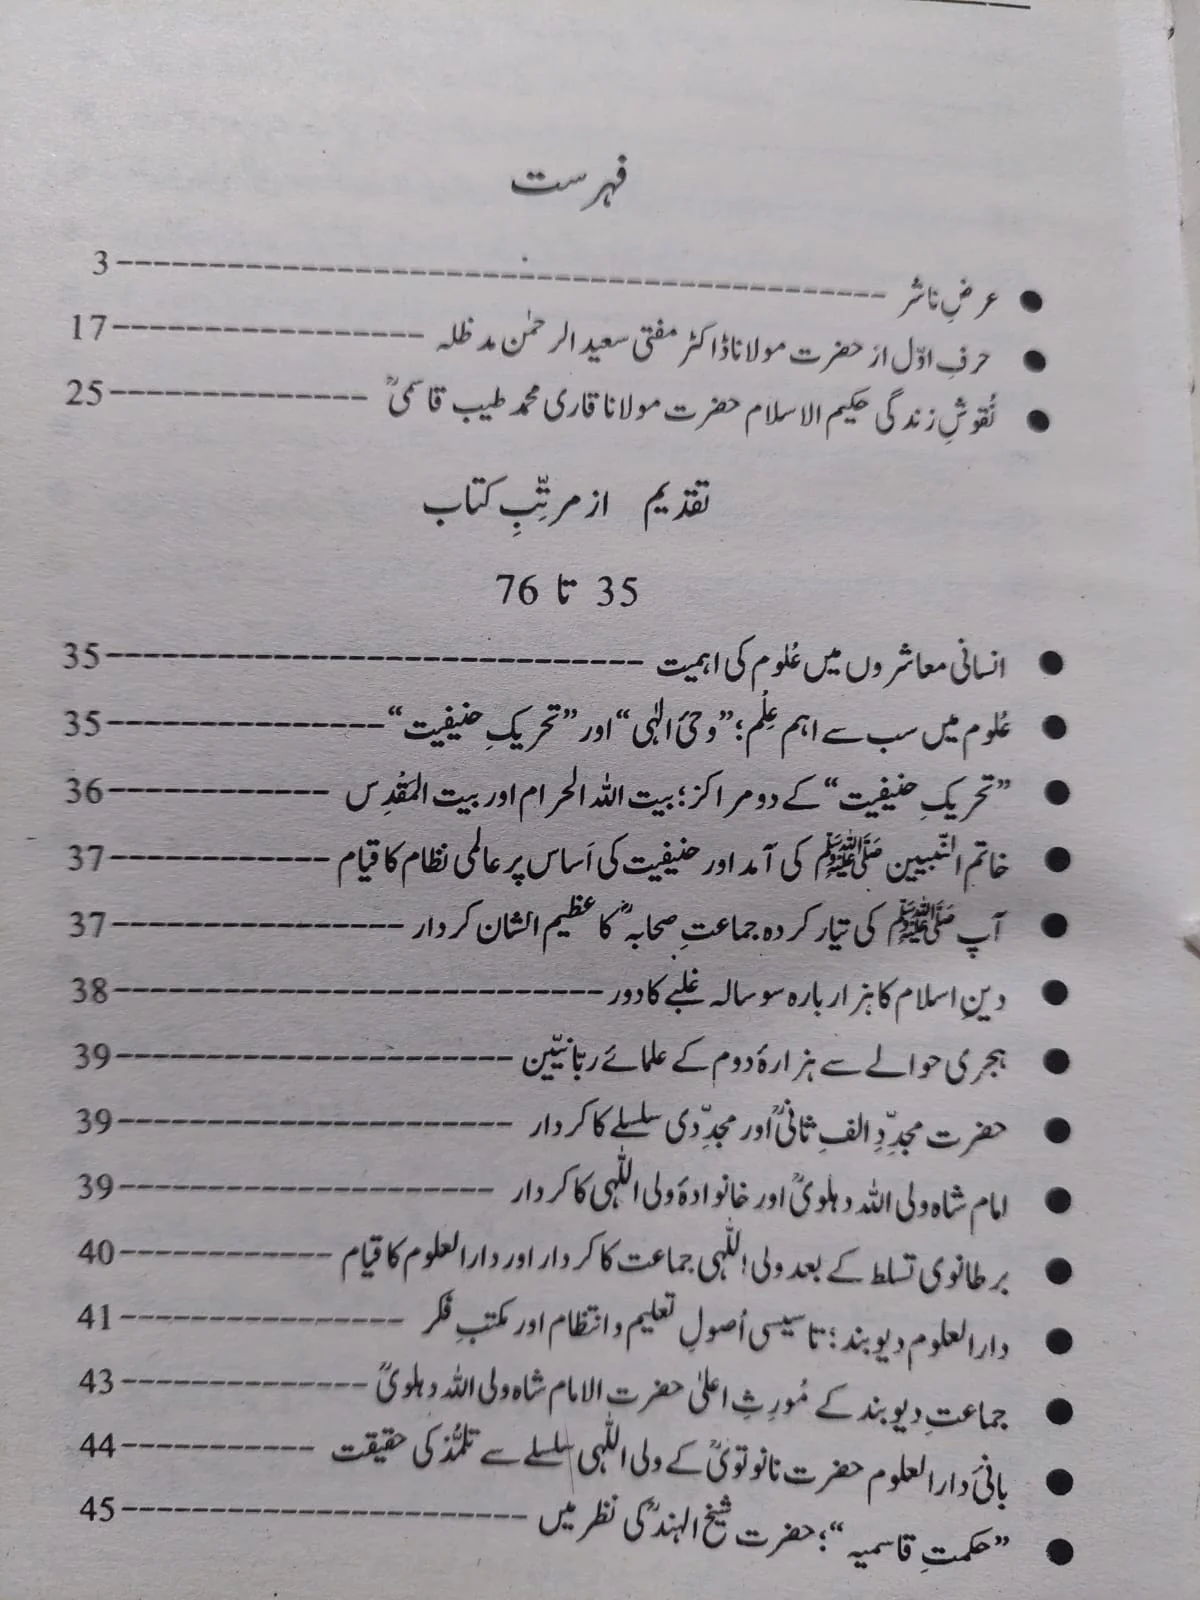 فہرست
● عرضِ ناشر ---------- 3
● حرفِ اوّل از حضرت مولانا ڈاکٹر مفتی سعید الرحمٰن مدظلہ ---------- 17
● نُقوشِ زندگی حکیم الاسلام حضرت مولانا قاری محمد طیب قاسمیؒ ---------- 25
تقدیم از مرتِّبِ کتاب
35 تا 76
● انسانی معاشروں میں عُلوم کی اہمیت ---------- 35
● عُلوم میں سب سے اہم عِلْم؛ ”وحیٔ الٰہی“ اور ”تحریکِ حنیفیت“ ---------- 35
● ”تحریکِ حنیفیت“ کے دو مراکز؛ بیت اللہ الحرام اور بیت المَقْدِس ---------- 36
● خاتم النّبیین ﷺ کی آمد اور حنیفیت کی اَساس پر عالمی نظام کا قیام ---------- 37
● آپ ﷺ کی تیار کردہ جماعتِ صحابہؓ کا عظیم الشان کردار ---------- 37
● دینِ اسلام کا ہزار بارہ سو سالہ غلبے کا دور ---------- 38
● ہجری حوالے سے ہزارۂ دوم کے علمائے ربّانیّین ---------- 39
● حضرت مجدِّدِ الفِ ثانیؒ اور مجدِّدی سلسلے کا کردار ---------- 39
● امام شاہ ولی اللہ دہلویؒ اور خانوادۂ ولی اللّٰہی کا کردار ---------- 39
● برطانوی تسلط کے بعد ولی اللّٰہی جماعت کا کردار اور دارالعلوم کا قیام ---------- 40
● دارالعلوم دیوبند؛ تاسیسی اُصولِ تعلیم و انتظام اور مکتبِ فکر ---------- 41
● جماعتِ دیوبند کے مُورِثِ اعلیٰ حضرت الامام شاہ ولی اللہ دہلویؒ ---------- 43
● بانیٔ دارالعلوم حضرت نانوتویؒ کے ولی اللّٰہی سلسلے سے تلمُّذ کی حقیقت ---------- 44
● ”حکمتِ قاسمیہ“؛ حضرت شیخ الہندؒ کی نظر میں ---------- 45